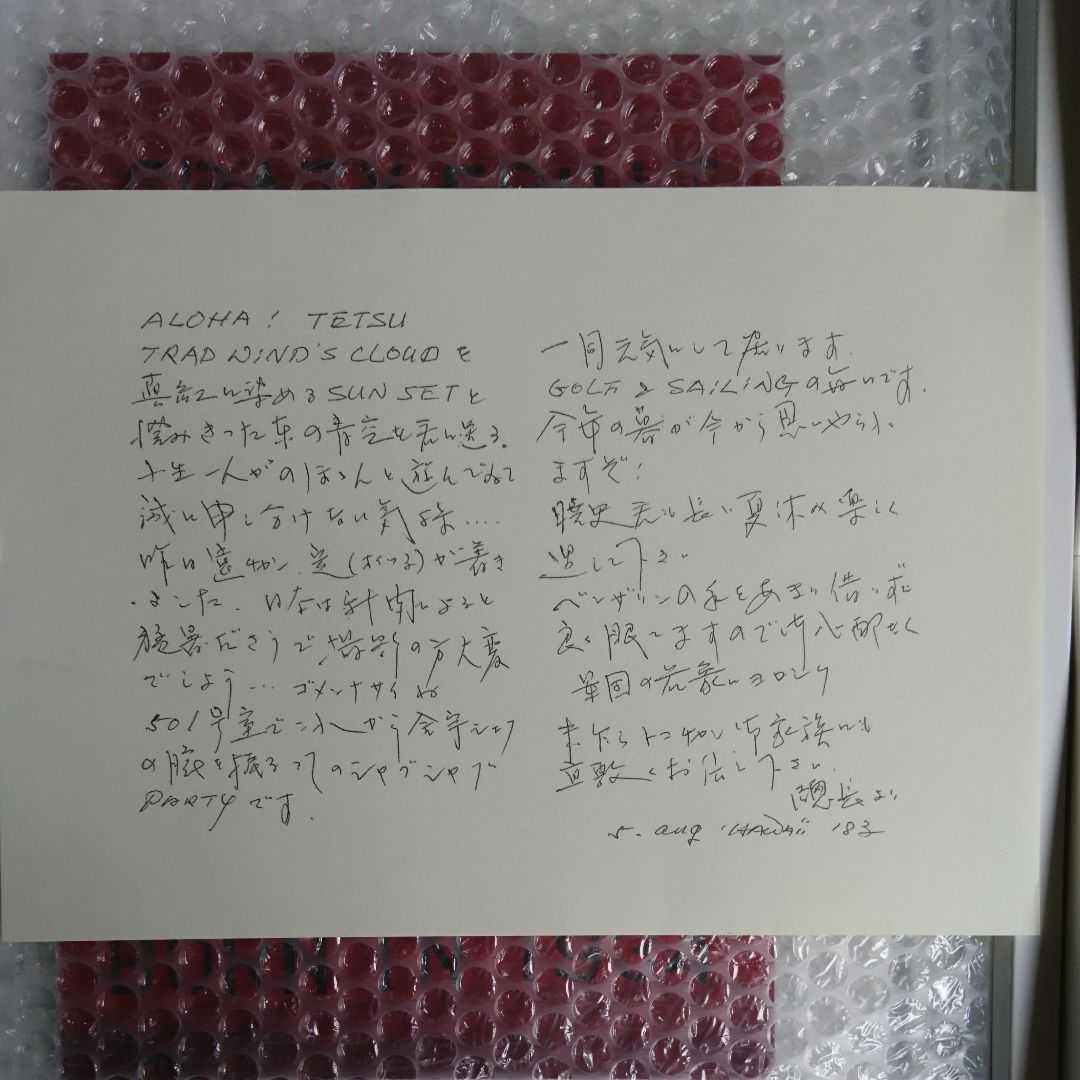 ALOHA! TETSU
TRAD WIND'S CLOUDを
真紅に染めるSUN SETと
澄みきった東の青空を君に送る。
小生一人がのほゝんと遊んでゐて
誠に申し分けない気持....
昨日遠ゐ
ました. 日本は新聞によると
猛暑ださうで撮影の方大変
でしよう... ゴメンナサイね
501号室でこれから全宇
の腕を振るつてのシャブシャブ
PARTYです.
一同元気にして居ります.
GOLFとSAiLiNGの毎日です.
今年の暮が今から思いやられ
ますぞ!
暁史君も長い夏休み楽しく
過して下さい
ベンザリンの手をあまり借りずに
良く眠てますので御心配なく
軍団の若衆にヨロシク
御家族にも
宜敷くお伝え下さい.
隠長より
5. aug 'HAWAii '83